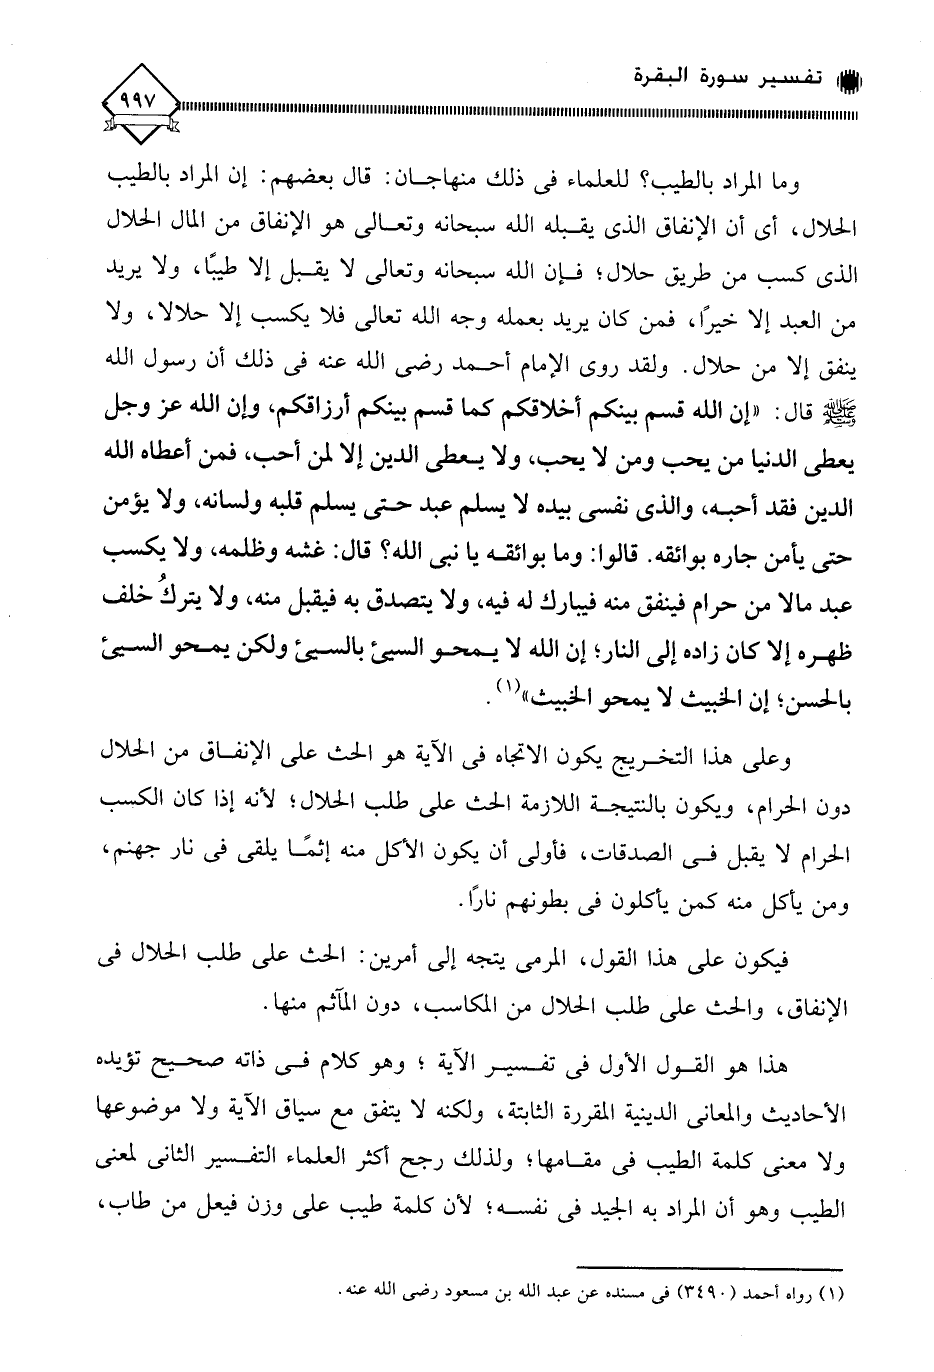 تفسير سورة البقرة
٩٩٧
وما المراد بالطيب؟ للعلماء فى ذلك منهاجان: قال بعضهم: إن المراد بالطيب
الحلال، أى أن الإنفاق الذى يقبله الله سبحانه وتعالى هو الإنفاق من المال الحلال
الذى كسب من طريق حلال؛ فإن الله سبحانه وتعالى لا يقبل إلا طيبًا، ولا يريد
من العبد إلا خيرًا، فمن كان يريد بعمله وجه الله تعالى فلا يكسب إلا حلالا، ولا
ينفق إلا من حلال. ولقد روى الإمام أحمد رضى الله عنه فى ذلك أن رسول الله
ﷺ قال: «إن الله قسم بينكم أخلاقكم كما قسم بينكم أرزاقكم، وإن الله عز وجل
يعطى الدنيا من يحب ومن لا يحب، ولا يعطى الدين إلا لمن أحب، فمن أعطاه الله
الدين فقد أحبه، والذى نفسى بيده لا يسلم عبد حتى يسلم قلبه ولسانه، ولا يؤمن
حتى يأمن جاره بوائقه. قالوا: وما بوائقه يا نبى الله؟ قال: غشه وظلمه، ولا يكسب
عبد مالا من حرام فينفق منه فيبارك له فيه، ولا يتصدق به فيقبل منه، ولا يتركُ خلف
ظهره إلا كان زاده إلى النار؛ إن الله لا يمحو السيئ بالسيئ ولكن يمحو السيئ
بالحسن؛ إن الخبيث لا يمحو الخبيث»(١).
وعلى هذا التخريج يكون الاتجاه فى الآية هو الحث على الإنفاق من الحلال
دون الحرام، ويكون بالنتيجة اللازمة الحث على طلب الحلال؛ لأنه إذا كان الكسب
الحرام لا يقبل فى الصدقات، فأولى أن يكون الأكل منه إثمًا يلقى فى نار جهنم،
ومن يأكل منه كمن يأكلون فى بطونهم نارًا.
فيكون على هذا القول، المرمى يتجه إلى أمرين: الحث على طلب الحلال فى
الإنفاق، والحث على طلب الحلال من المكاسب، دون المآثم منها.
هذا هو القول الأول فى تفسير الآية ؛ وهو كلام فى ذاته صحيح تؤيده
الأحاديث والمعانى الدينية المقررة الثابتة، ولكنه لا يتفق مع سياق الآية ولا موضوعها
ولا معنى كلمة الطيب فى مقامها؛ ولذلك رجح أكثر العلماء التفسير الثانى لمعنى
الطيب وهو أن المراد به الجيد فى نفسه؛ لأن كلمة طيب على وزن فيعل من طاب،
(١) رواه أحمد (٣٤٩٠) فى مسنده عن عبد الله بن مسعود رضى الله عنه.